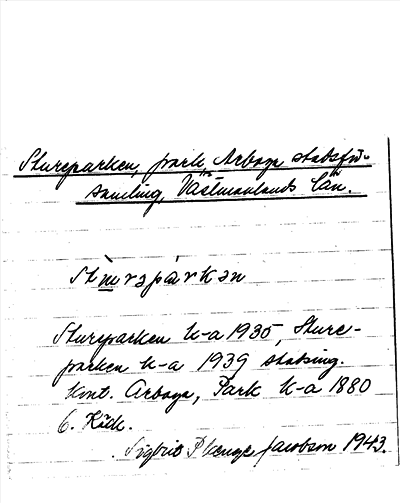 Stureparken, park, Arboga stadsför-
samling, Västmanlands län.
Stu̱rəpàrkən
Stureparken k-a 1935, Sture-
parken k-a 1939 stadsing.
kont. Arboga, Park k-a 1880
6. Käll.
Sigbrit Plænge Jacobson 1943.